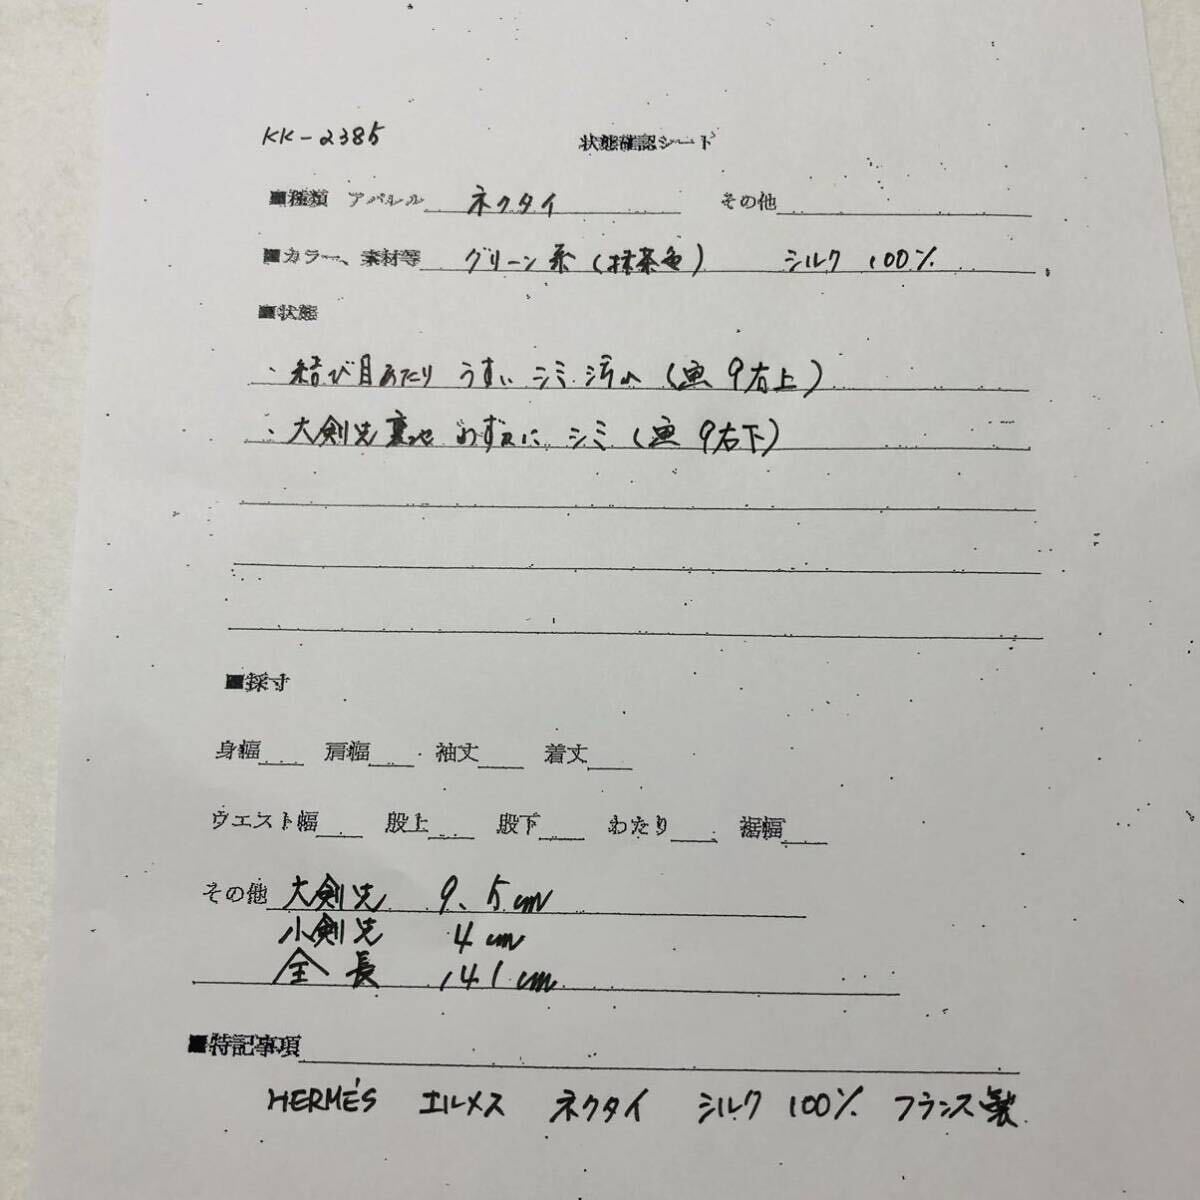 KK-2385 状態確認シート
■種類 アパレル ネクタイ その他
■カラー、素材等 グリーン系(抹茶色) シルク 100%
■状態
・結び目あたり うすいシミ汚れ(画9右上)
・大剣先裏地 わずかにシミ(画9右下)
■採寸
身幅 肩幅 袖丈 着丈
ウエスト幅 股上 股下 わたり 裾幅
その他 大剣先 9.5cm
小剣先 4cm
全長 141cm
■特記事項
HERMÉS エルメス ネクタイ シルク 100% フランス製